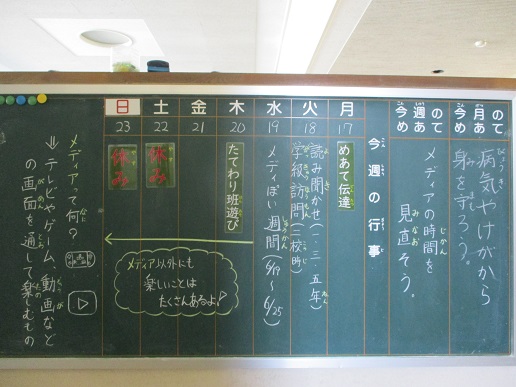 今月の
めあて
病気やけがから
身を守ろう。
今週の
めあて
メディアの時間を
見直そう。
今週の行事
月
17
めあて伝達
火
18
読み聞かせ(一・三・五年)
学級訪問(三校時)
水
19
メディぽい週間(6/19~6/25)
木
20
たてわり班遊び
金
21
土
22
休み
日
23
休み
メディア以外にも
楽しいことは
たくさんあるよ!
メディアって何?
⇒テレビやゲーム、動画など
の画面を通して楽しむもの